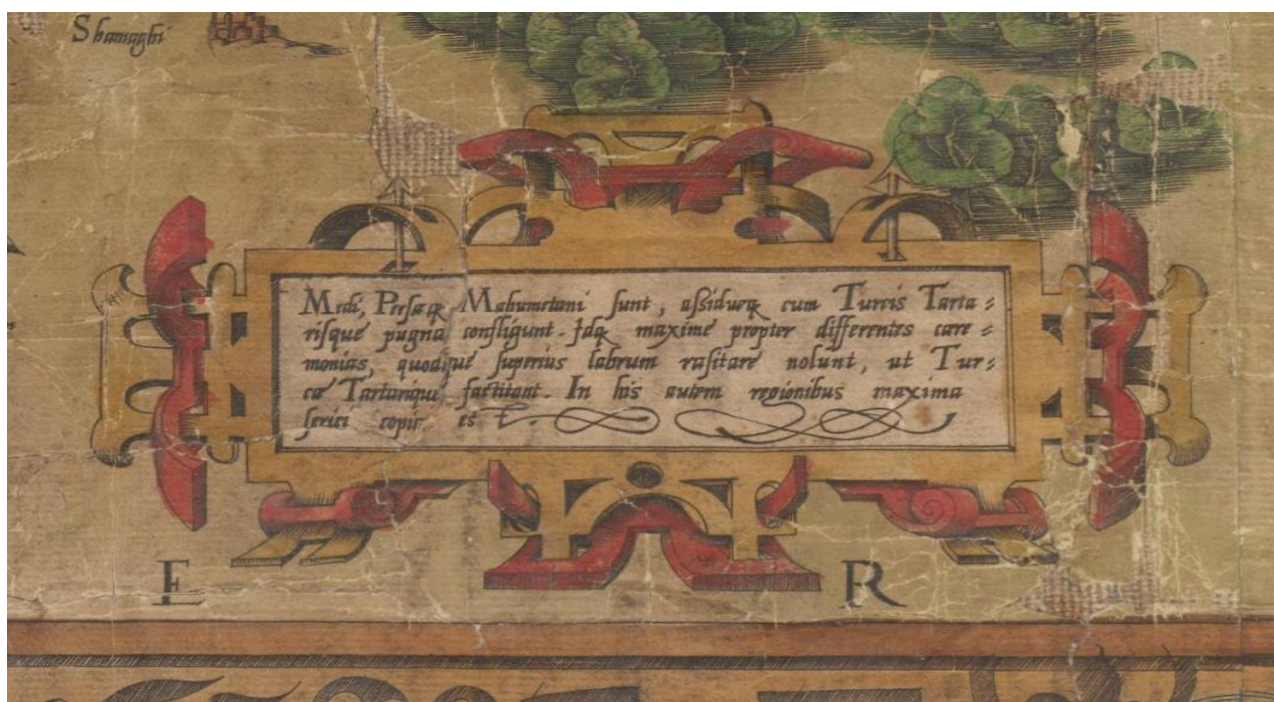 Shamaghi
Medi, Persæqʒ Mahumetani sunt, assidueqʒ cum Turcis Tarta=
risque pugna confligunt. Idqʒ maxime propter differentes care=
monias, quodque superius labrum rasitare nolunt, ut Tur=
cæ Tartarique factitant. In his autem regionibus maxima
serici copia est.
E R